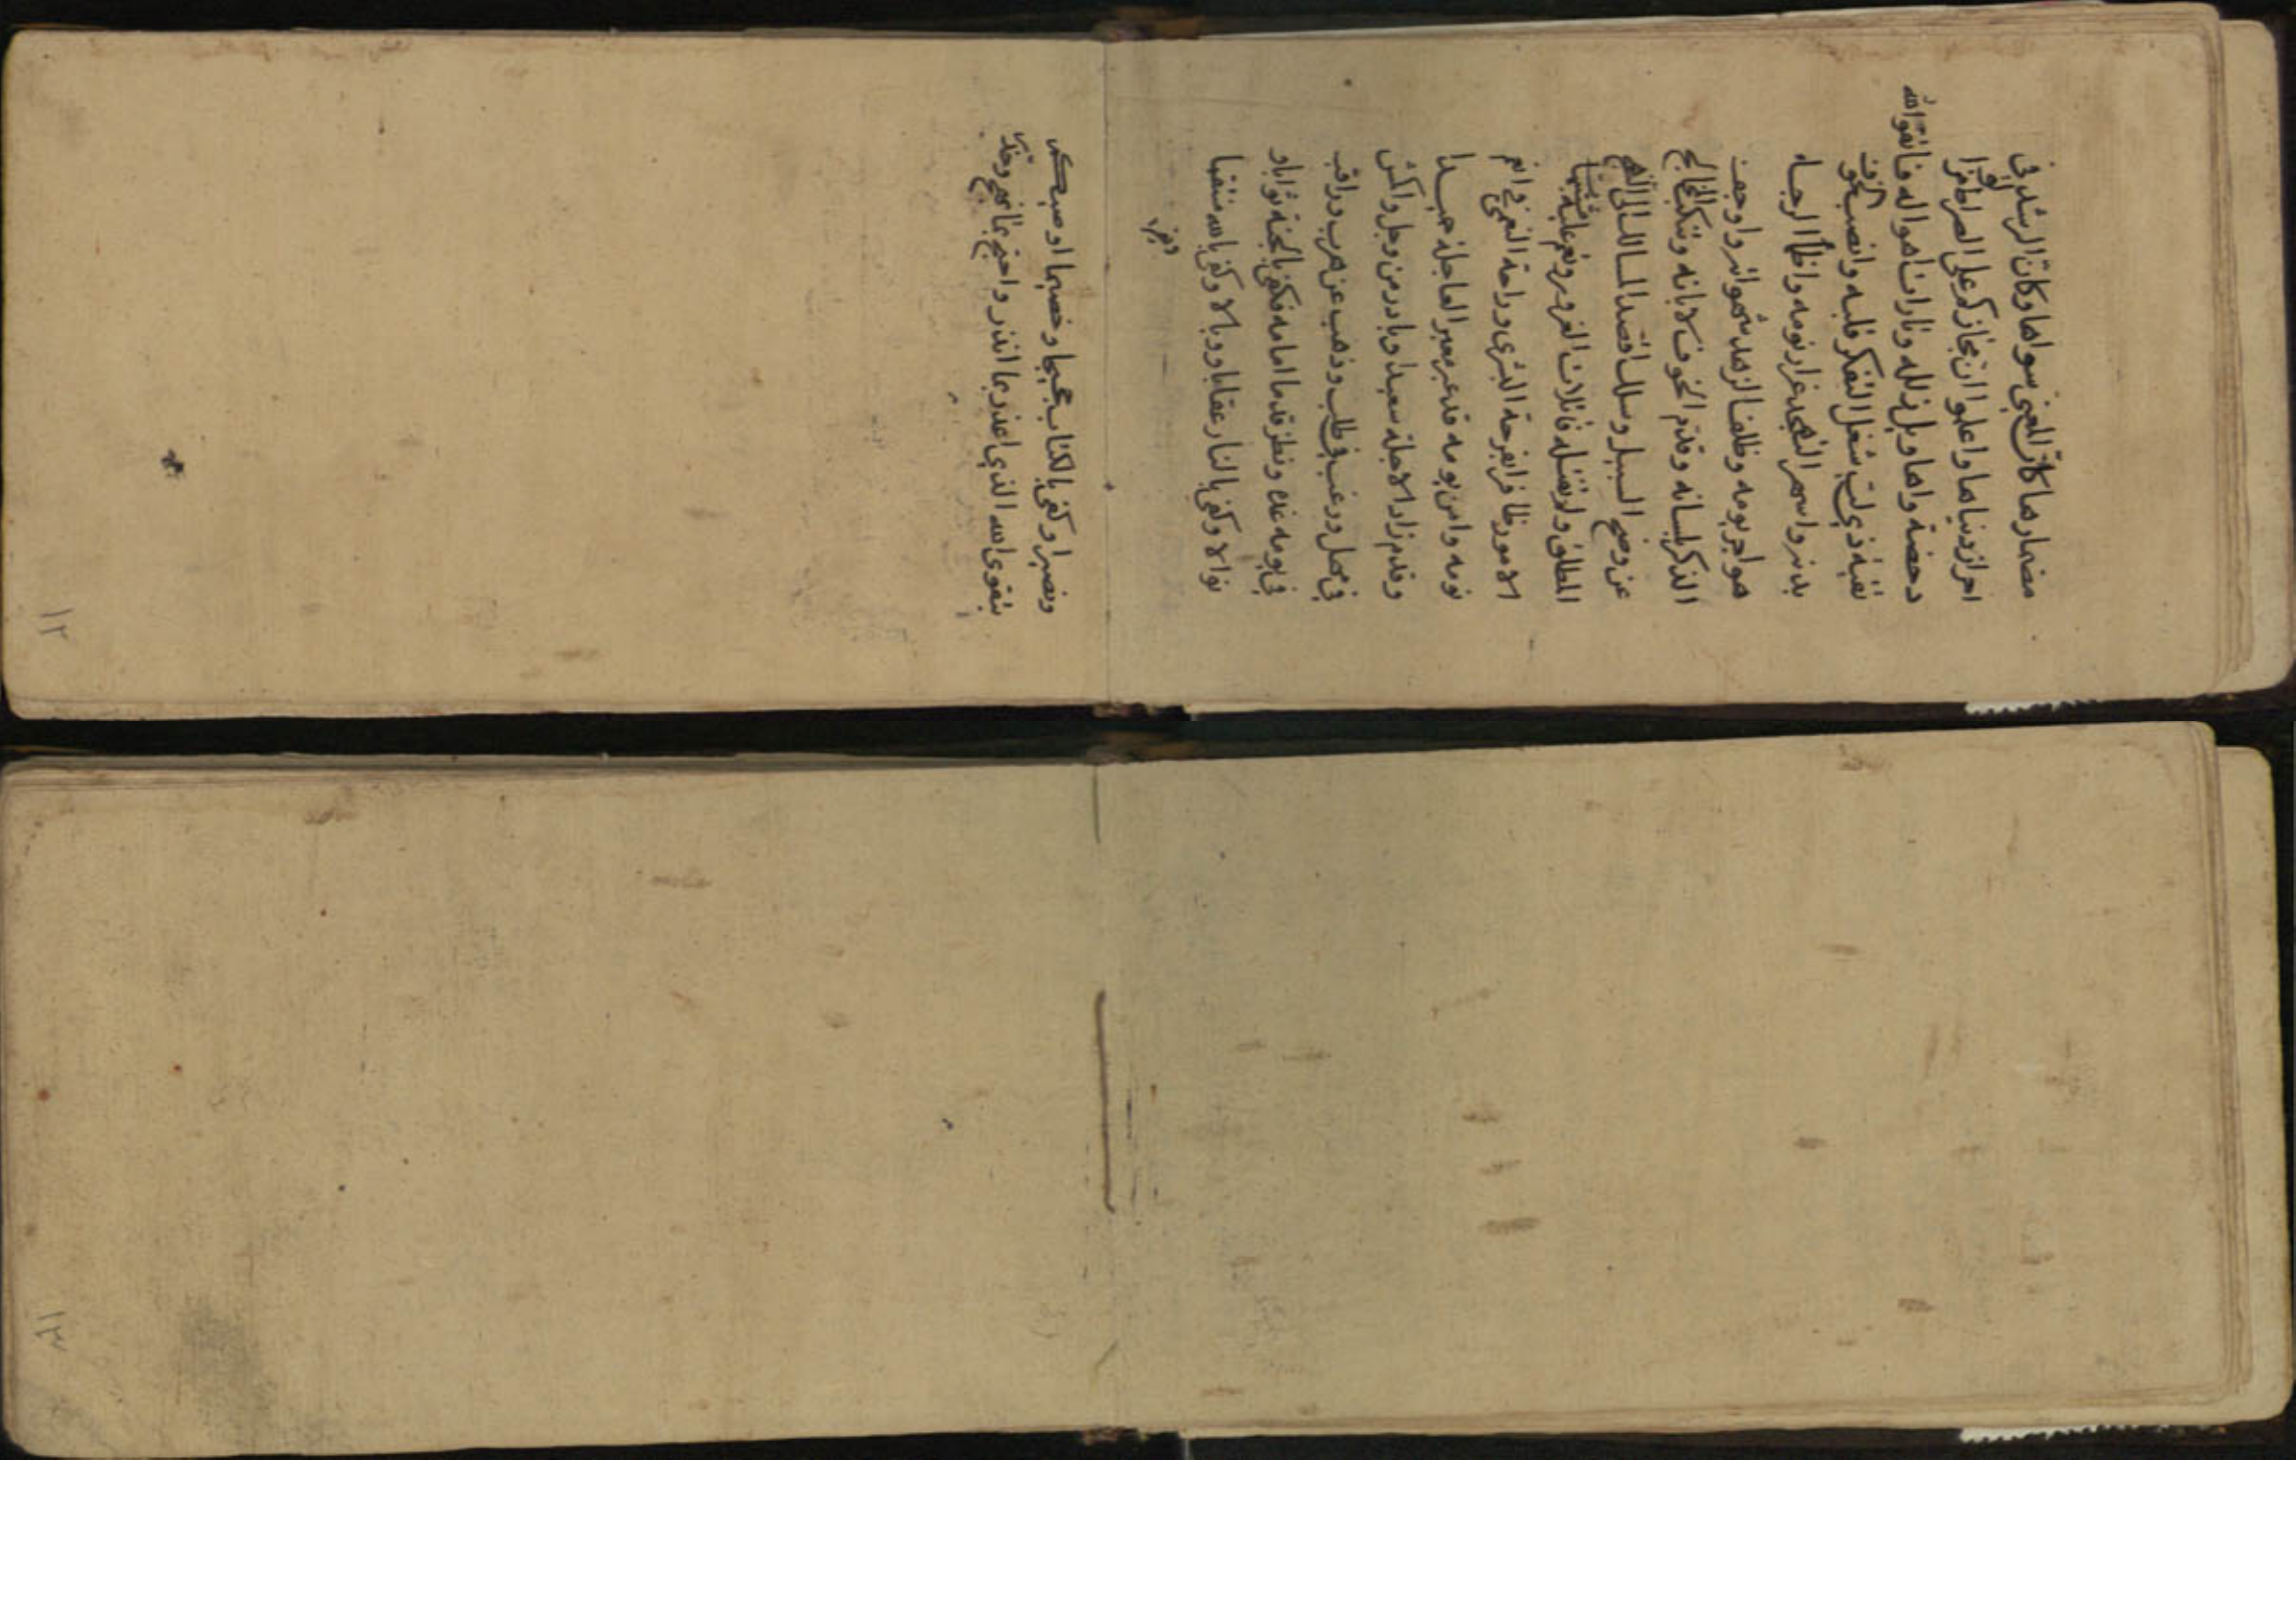 مضمارها كان المعني سواها وكان الرشد في
احراز دنياها واعلموا ان مجازكم على الصراط ومزالق
دحضه واهاويل زلله وتارات اهواله فاتقوا الله
تقية ذي لب شغل التفكر قلبه وانصب الخوف
بدنه واسهر التهجد غرار نومه واظمأ الرجاء
هواجر يومه وظلف الزهد شهواته واوجف
الذكر بلسانه وقدم الخوف لابانه وتنكب المخالج
عن وضح السبيل وسلك اقصد المسالك الى النهج
المطلوب ولم تفتله فاتلات الغرور ولم تعم عليه مشتبهات
الامور ظافرا بفرحة البشرى وراحة النعمى في انعم
نومه وامن يومه قد عبر معبر العاجلة حميدا
وقدم زاد الاجلة سعيدا وبادر من وجل واكمش
في مهل ورغب في طلب وذهب عن هرب وراقب
في يومه غده ونظر قدما امامه فكفى بالجنة ثوابا و
نوالا وكفى بالنار عقابا ووبالا وكفى بالله منتقما
ونصيرا وكفى بالكتاب حجيجا وخصيما اوصيكم
بتقوى الله الذي اعذر بما انذر واحتج بما نهج وحذركم
١٢
١٣